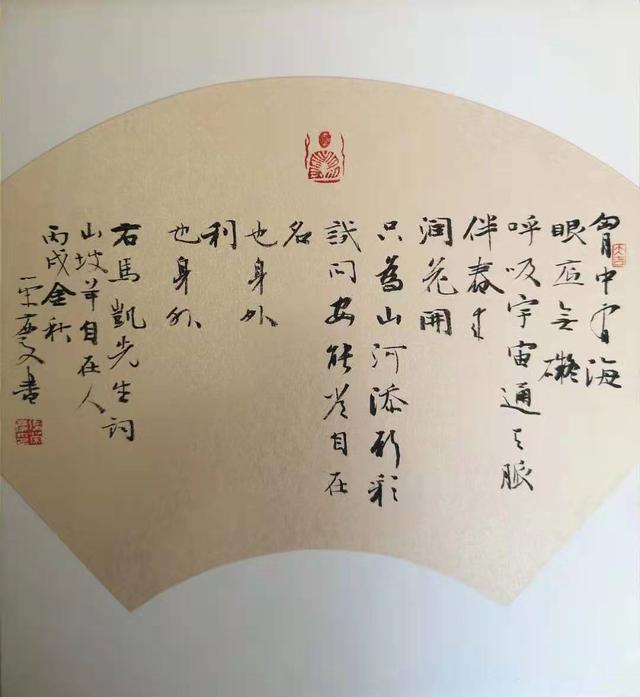 胷中有海
眼底无礙
呼吸宇宙通天脈
伴春来
润花開
只為山河添新彩
試问安能常自在
名
也身外
利
也身外
右馬凱先生詞
山坡羊自在人
丙戌金秋
書